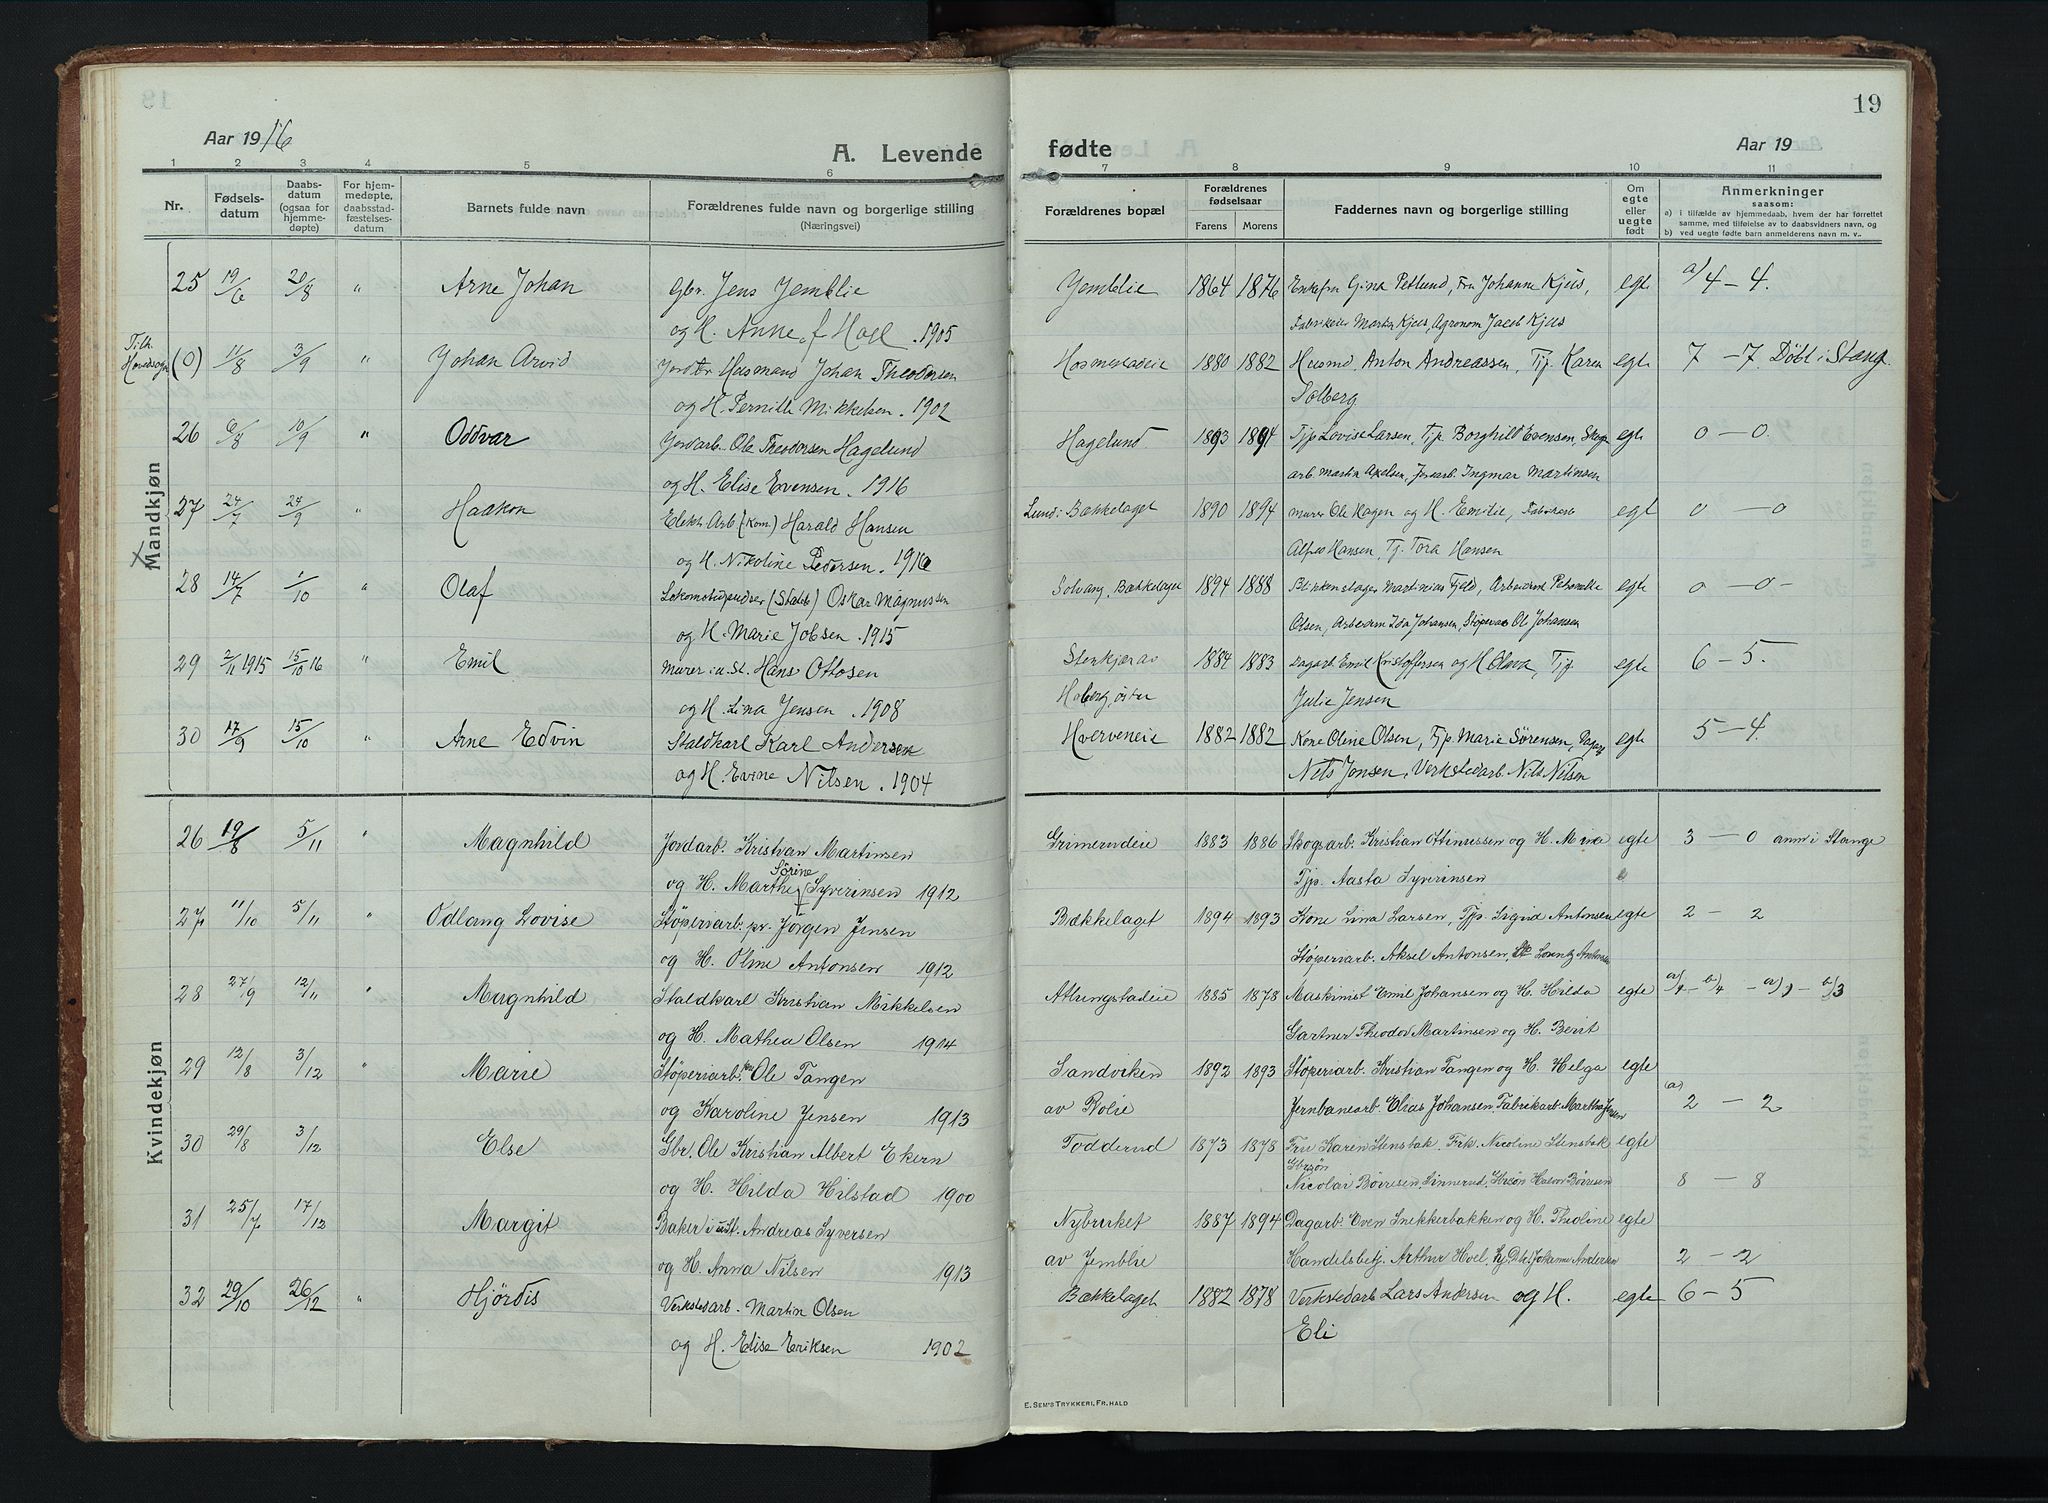 19
Aar 1916
A. Levende fødte
Aar 19
1 2 3 4 5 6 7 8 9 10 11
Nr.
Fødsels-
datum
Daabs-
datum
(ogsaa for
hjemme-
døpte)
For hjem-
medøpte,
daabsstad-
fæstelses-
datum
Barnets fulde navn
Forældrenes fulde navn og borgerlige stilling
(Næringsvei)
Forældrenes bopæl
Forældrenes
fødselsaar
Farens Morens
Faddernes navn og borgerlige stilling
Om
egte
eller
uegte
født
Anmerkninger
saasom:
a) i tilfælde av hjemmedaab, hvem der har forrettet
samme, med tilføielse av to daabsvidners navn, og
b) ved uegte fødte barn anmelderens navn m. v.
Mandkjøn
25 19/6 20/8 " Arne Johan Gbr. Jens Jemblie Jemblie 1864 1876 Enkefru Gina Petlund, Fru Johanne Kjus, egte a) 4 – 4.
og H. Anne f. Hoel . 1905 Martin Kjus, Agronom Jacob Kjus
Tilh.
Hovedsogn
(0) 11/8 3/9 " Johan Arvid Husmand Johan Theodorsen 1880 1882 Husmd. Anton Andreassen, Tj. Karen egte 7 – 7. Døbt i Stange
og H. Pernille Mikkelsen . 1902 Solberg
26 6/8 10/9 " Oddvar Jordarb. Ole Theodorsen Hagelund Hagelund 1893 1894 Tjp. Lovise Larsen, Tjp. Borghild Evensen, Skogs- egte 0 – 0.
og H. Elise Evensen . 1916 arb. Martin Axelsen, Jordarb. Ingmar Martinsen
27 24/7 24/9 " Haakon Elektr. Arb (kom) Harald Hansen Lund: Bækkelaget 1890 1894 Murer Ole Hagen og H. Emilie, Fabrikarb egte 0 – 0
og H. Nikoline Pedersen . 1916 Alfred Hansen, Tj. Tora Hansen
28 14/7 1/10 " Olaf Lokomotivpudser (Statsb) Oskar Magnussen Solvang, Bækkelaget 1894 1888 Martinius Fjeld, Petronelle egte 0 – 0 –
og H. Marie Jobsen . 1915 Olsen, Ida Johansen, Ole Johansen
29 2/11 1915 15/10 16 " Emil Murer i u. St. Hans Ottosen Stenkjær av 1884 1883 Dagarb. Emil Kristoffersen og H. Olava, Tjp. egte 6 – 5.
og H. Lina Jensen . 1908 Hoberg, østre Julie Jensen
30 17/9 15/10 " Arne Edvin Staldkarl Karl Andersen Hverveneie 1882 1882 Kone Oline Olsen, Tjp. Marie Sørensen, Dagarb. egte 5 – 4.
og H. Evine Nilsen . 1904 Nils Jensen, Verkstedarb. Nils Nilsen
Kvindekjøn
26 19/8 5/11 " Magnhild Jordarb. Kristian Martinsen Grimerudeie 1883 1886 Skogsarb. Kristian Ottinussen og H. Mina egte 3 – 0 anm i Stange
Sörine
og H. Marthe Syverinsen 1912 Tjp. Aasta Syverinsen
27 11/10 5/11 " Odlaug Lovise Støperiarb. pr. Jørgen Jensen Bækkelaget 1894 1893 Kone Lina Larsen, Tjp. Sigrid Antonsen egte 2 – 2
og H. Oline Antonsen 1912 Støperiarb. Aksel Antonsen, Lorentz Antonsen
28 27/9 12/11 " Magnhild Staldkarl Kristian Mikkelsen Atlungstadeie 1885 1878 Maskinist Emil Johansen og H. Hilda egte
og H. Mathea Olsen 1914 Gartner Theodor Martinsen og H. Berit
29 12/8 3/12 " Marie Støperiarb. Ole Tangen Sandviken 1892 1893 Støperiarb. Kristian Tangen og H. Helga egte
og Karoline Jensen 1913 av Bolie Jernbanearb. Elias Johansen. Fabrikarb. Martha Jensen (a) 2 – 2
30 29/8 3/12 Else Gbr. Ole Kristian Albert Ekern Todderud 1873 1878 Fru Karen Stensbak. Frk. Nicoline Stensbak egte
Gbrsøn
og H. Hilda Hilstad 1900 Nicolai Börresen, Sinnerud, Halvor Börresen 8 – 8
31 25/7 17/12 Margit Baker i u. st. Andreas Syversen Nybruket 1887 1894 Dagarb. Even Snekkerbakken og H. Theoline egte
og H. Anna Nilsen 1913 av Jemblie Handelsbetj. Arthur Hoel, Johanne Andersen 2 – 2
32 29/10 26/12 " Hjördis Verkstedarb. Martin Olsen Bækkelaget 1882 1878 Verkstedarb Lars Andersen og H. egte 6 – 5
og H. Elise Eriksen 1902 Eli
E. SEM'S TRYKKERI, FR. HALD